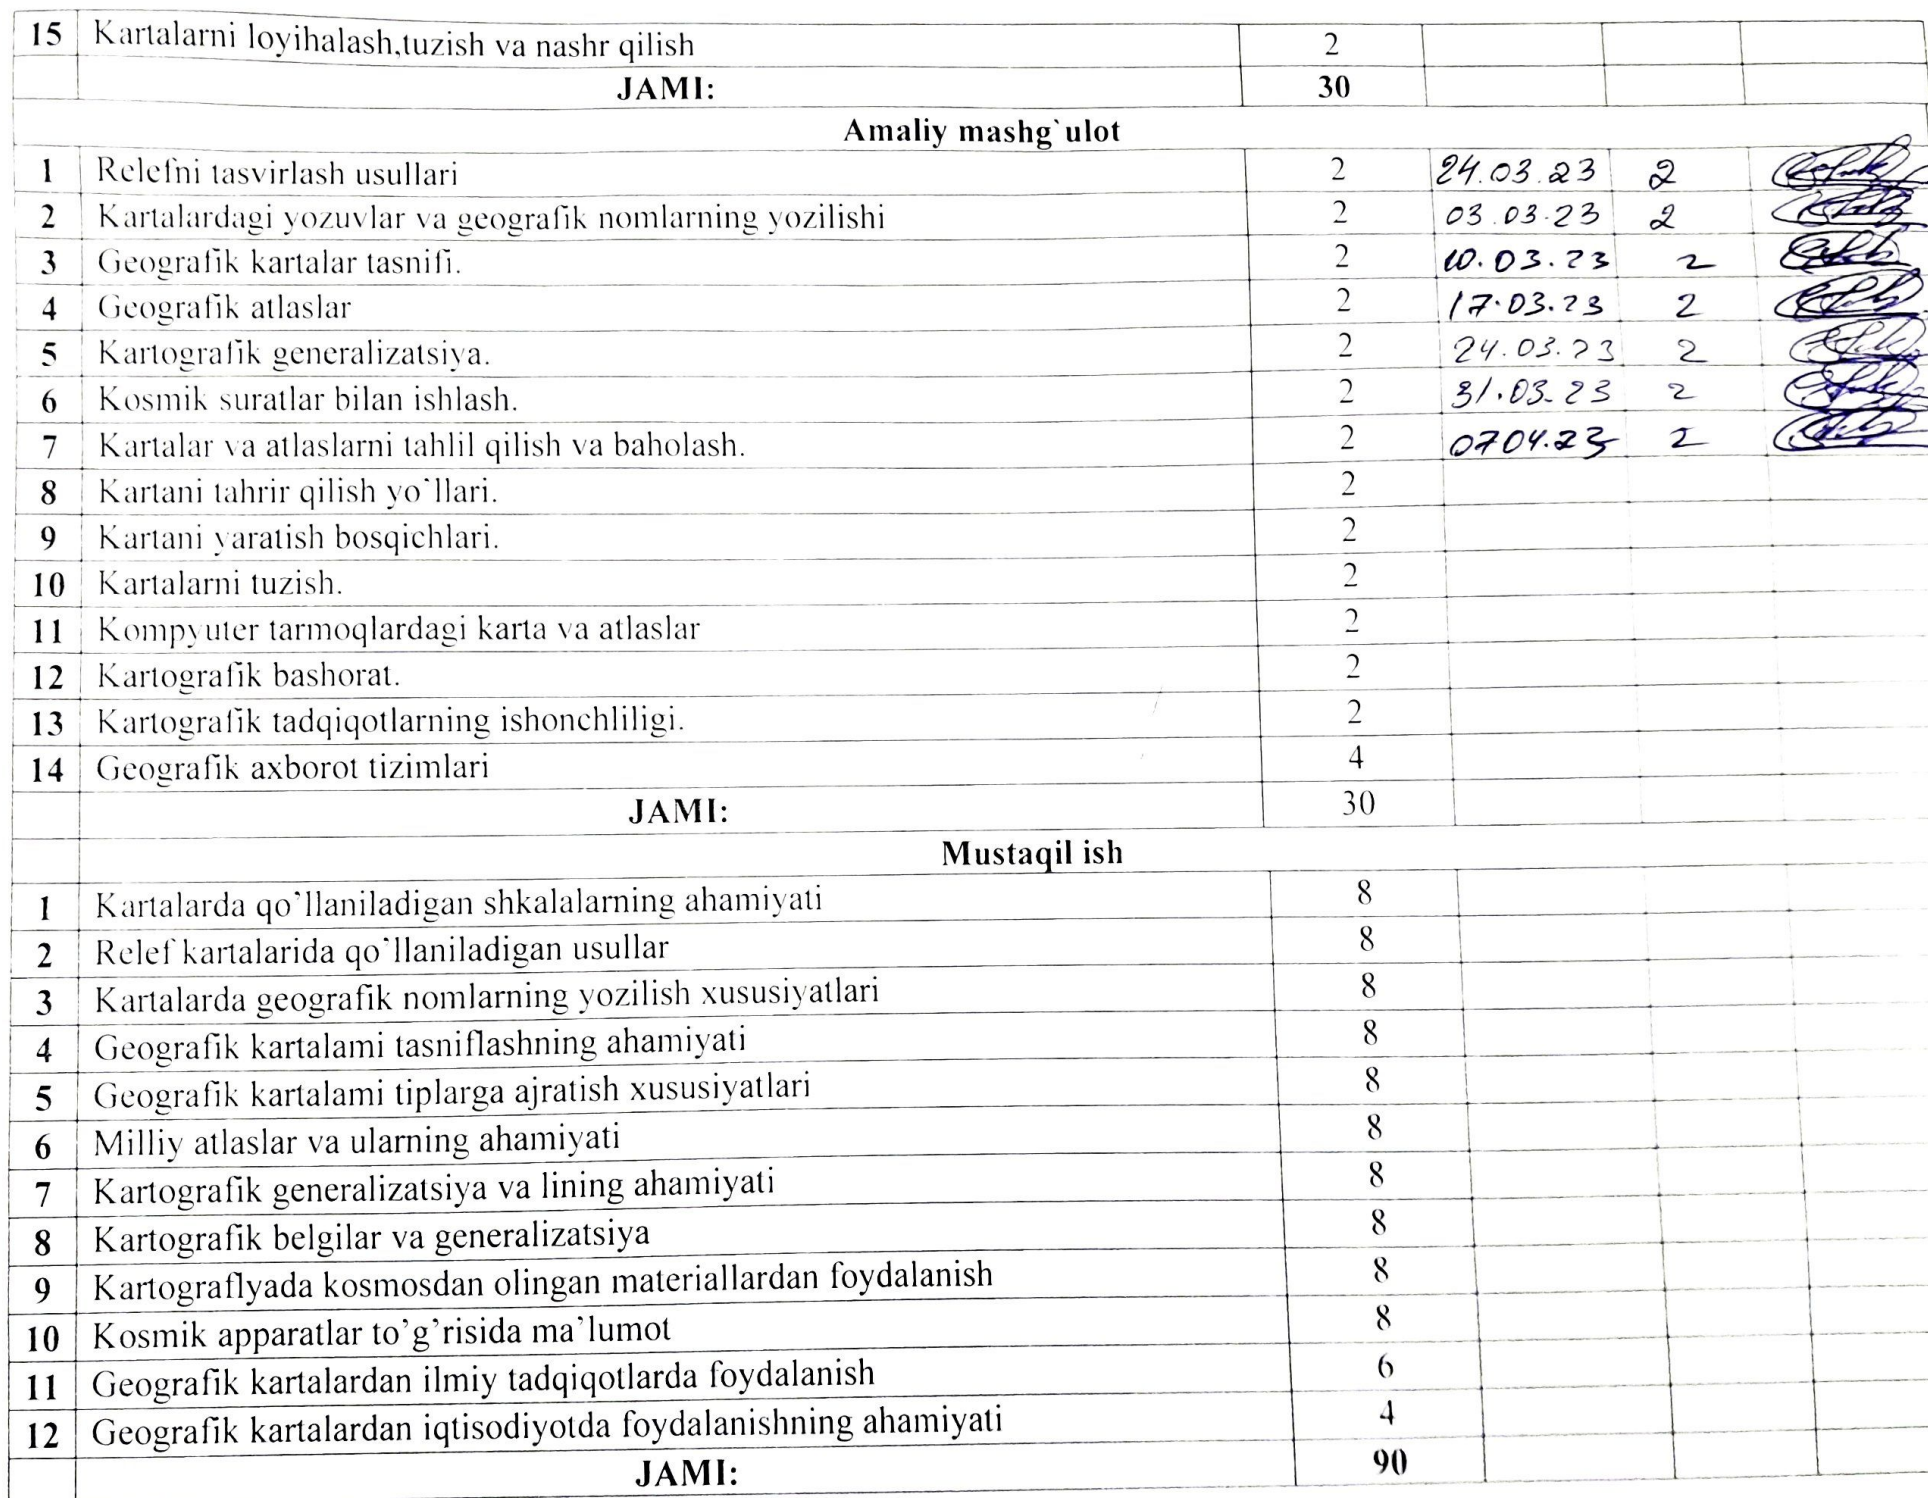 15 Kartalarni loyihalash,tuzish va nashr qilish 2
JAMI: 30
Amaliy mashg`ulot
1 Relefni tasvirlash usullari 2 24.03.23 2
2 Kartalardagi yozuvlar va geografik nomlarning yozilishi 2 03.03.23 2
3 Geografik kartalar tasnifi. 2 10.03.23 2
4 Geografik atlaslar 2 17.03.23 2
5 Kartografik generalizatsiya. 2 24.03.23 2
6 Kosmik suratlar bilan ishlash. 2 31.03.23 2
7 Kartalar va atlaslarni tahlil qilish va baholash. 2 0704.23 2
8 Kartani tahrir qilish yo`llari. 2
9 Kartani yaratish bosqichlari. 2
10 Kartalarni tuzish. 2
11 Kompyuter tarmoqlardagi karta va atlaslar 2
12 Kartografik bashorat. 2
13 Kartografik tadqiqotlarning ishonchliligi. 2
14 Geografik axborot tizimlari 4
JAMI: 30
Mustaqil ish
1 Kartalarda qo`llaniladigan shkalalarning ahamiyati 8
2 Relef kartalarida qo`llaniladigan usullar 8
3 Kartalarda geografik nomlarning yozilish xususiyatlari 8
4 Geografik kartalami tasniflashning ahamiyati 8
5 Geografik kartalami tiplarga ajratish xususiyatlari 8
6 Milliy atlaslar va ularning ahamiyati 8
7 Kartografik generalizatsiya va lining ahamiyati 8
8 Kartografik belgilar va generalizatsiya 8
9 Kartograflyada kosmosdan olingan materiallardan foydalanish 8
10 Kosmik apparatlar to’g’risida ma’lumot 8
11 Geografik kartalardan ilmiy tadqiqotlarda foydalanish 6
12 Geografik kartalardan iqtisodiyotda foydalanishning ahamiyati 4
JAMI: 90